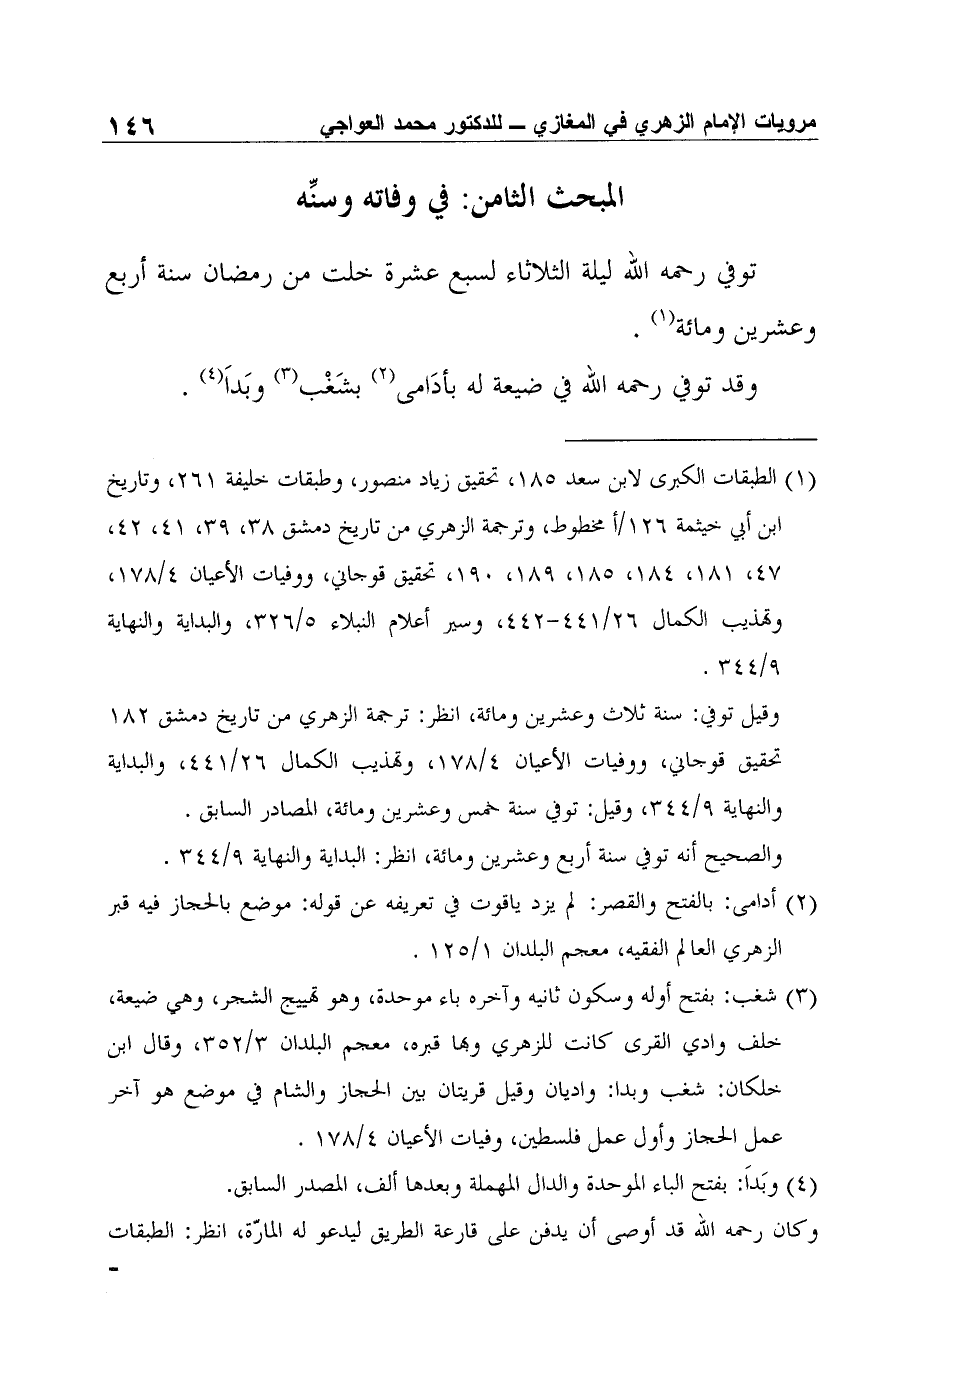 مرويات الإمام الزهري في المغازي ــ للدكتور محمد العواجي ١٤٦
المبحث الثامن: في وفاته وسنِّه
توفي رحمه الله ليلة الثلاثاء لسبع عشرة خلت من رمضان سنة أربع
وعشرين ومائة(١) .
وقد توفي رحمه الله في ضيعة له بأدَامى(٢) بشَغْب(٣) وبَدَاَ(٤) .
(١) الطبقات الكبرى لابن سعد ١٨٥، تحقيق زياد منصور، وطبقات خليفة ٢٦١، وتاريخ
ابن أبي خيثمة ١٢٦/أ مخطوط، وترجمة الزهري من تاريخ دمشق ٣٨، ٣٩، ٤١، ٤٢،
٤٧، ١٨١، ١٨٤، ١٨٥، ١٨٩، ١٩٠، تحقيق قوجاني، ووفيات الأعيان ١٧٨/٤،
وتهذيب الكمال ٤٤١/٢٦-٤٤٢، وسير أعلام النبلاء ٣٢٦/٥، والبداية والنهاية
٣٤٤/٩ .
وقيل توفي: سنة ثلاث وعشرين ومائة، انظر: ترجمة الزهري من تاريخ دمشق ١٨٢
تحقيق قوجاني، ووفيات الأعيان ١٧٨/٤، وتهذيب الكمال ٤٤١/٢٦، والبداية
والنهاية ٣٤٤/٩، وقيل: توفي سنة خمس وعشرين ومائة، المصادر السابق .
والصحيح أنه توفي سنة أربع وعشرين ومائة، انظر: البداية والنهاية ٣٤٤/٩ .
(٢) أدامى: بالفتح والقصر: لم يزد ياقوت في تعريفه عن قوله: موضع بالحجاز فيه قبر
الزهري العالم الفقيه، معجم البلدان ١٢٥/١ .
(٣) شغب: بفتح أوله وسكون ثانيه وآخره باء موحدة، وهو تهييج الشجر، وهي ضيعة،
خلف وادي القرى كانت للزهري وبها قبره، معجم البلدان ٣٥٢/٣، وقال ابن
خلكان: شغب وبدا: واديان وقيل قريتان بين الحجاز والشام في موضع هو آخر
عمل الحجاز وأول عمل فلسطين، وفيات الأعيان ١٧٨/٤ .
(٤) وبَدَاَ: بفتح الباء الموحدة والدال المهملة وبعدها ألف، المصدر السابق.
وكان رحمه الله قد أوصى أن يدفن على قارعة الطريق ليدعو له المارّة، انظر: الطبقات
=